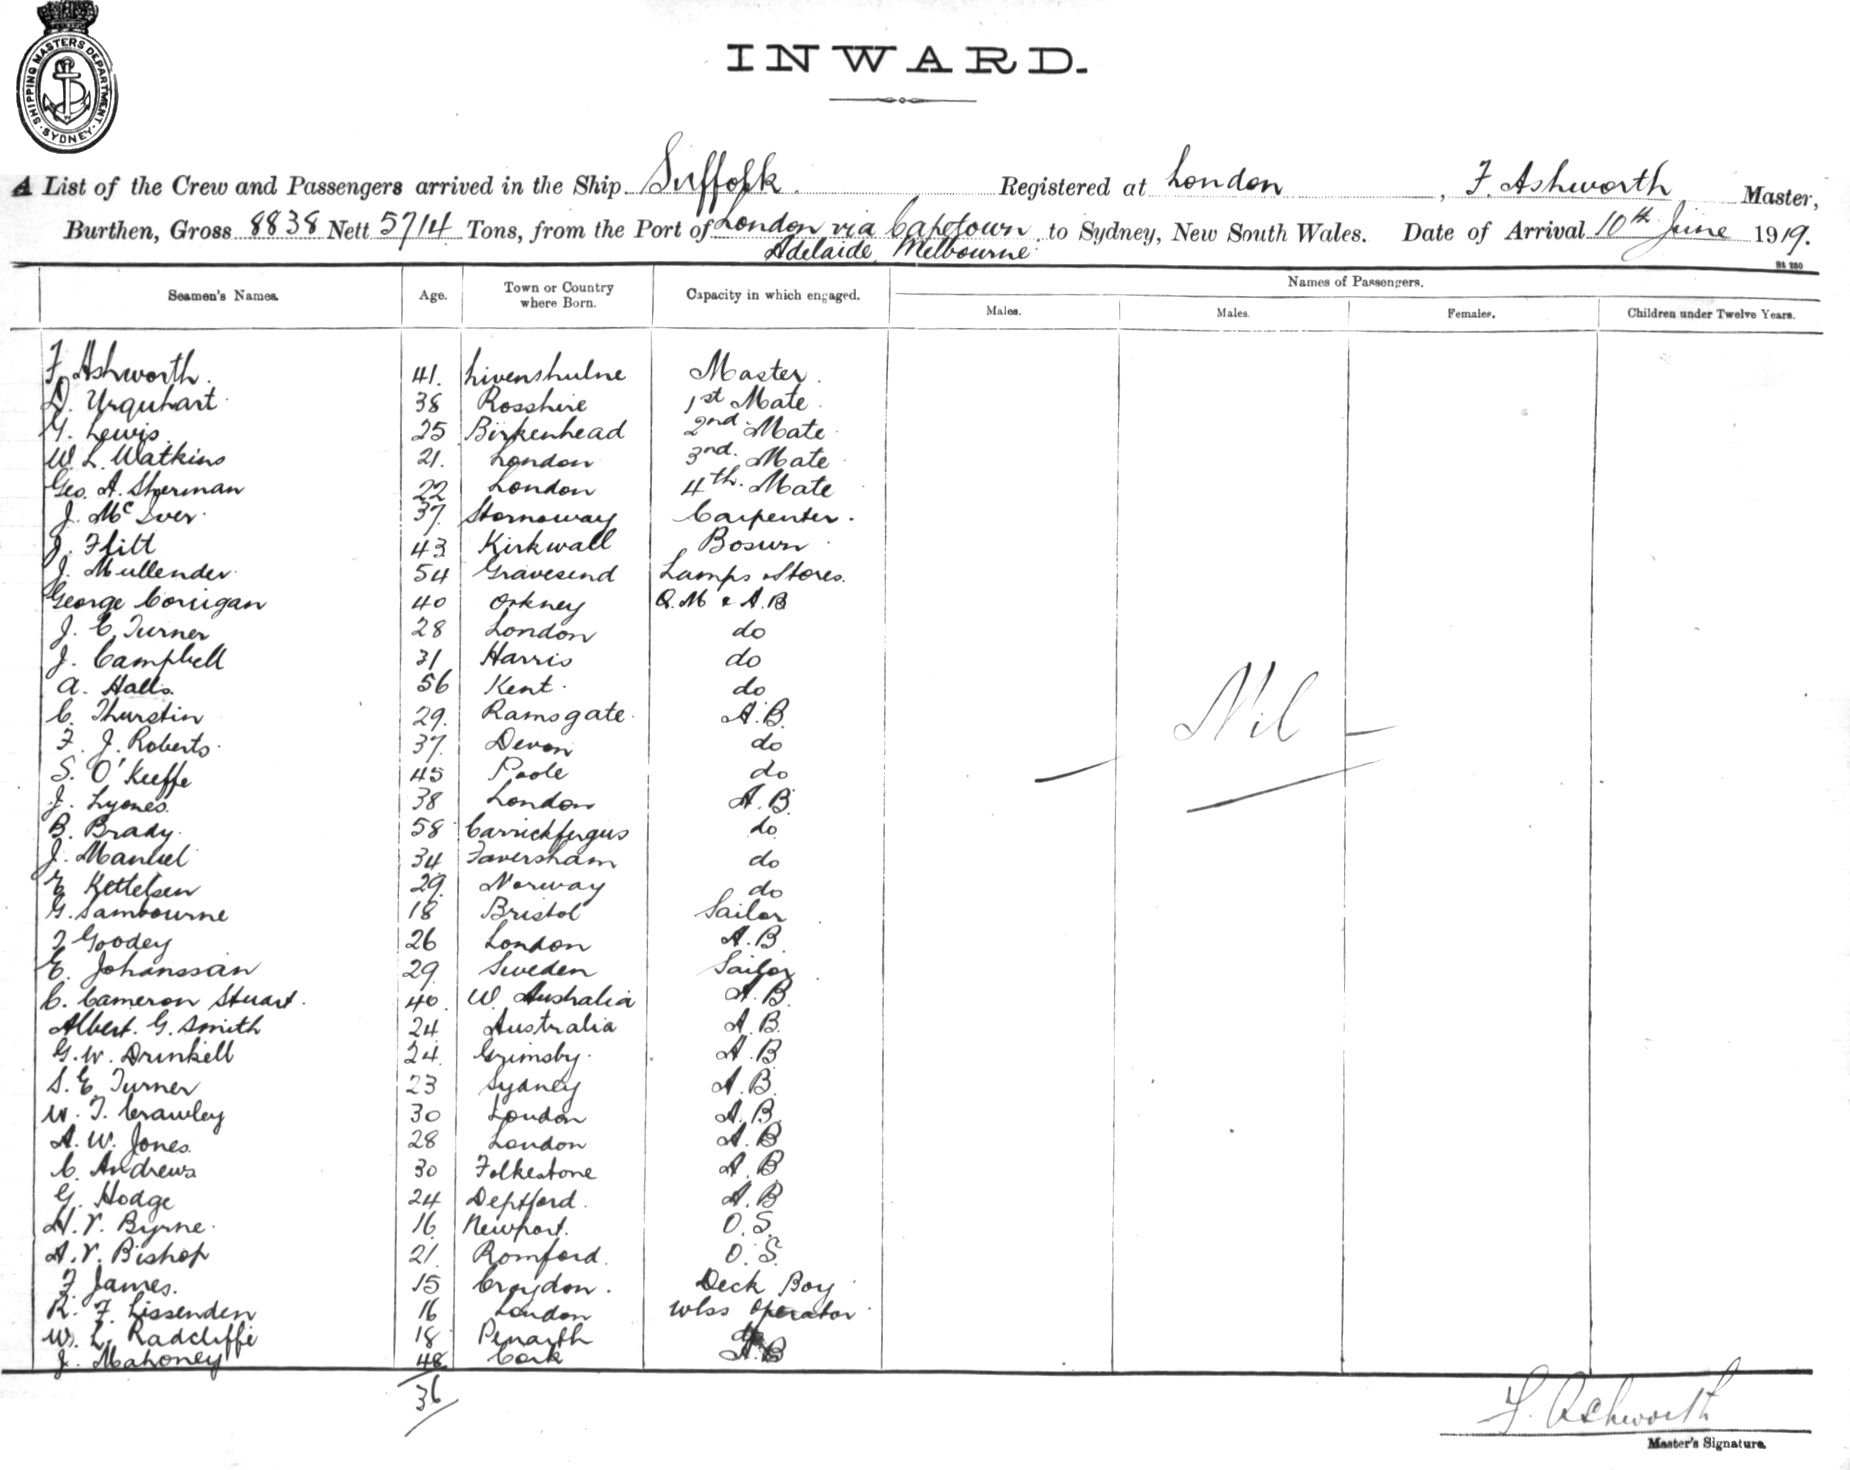 SHIPPING MASTERS DEPARTMENT
SYDNEY
INWARD.
A List of the Crew and Passengers arrived in the Ship Suffolk. Registered at London, F. Ashworth Master,
Burthen, Gross 8838 Nett 5714 Tons, from the Port of London via Capetown, to Sydney, New South Wales. Date of Arrival 10th June 1919.
Adelaide, Melbourne
St 250
Seamen's Names. Age. Town or Country where Born. Capacity in which engaged. Names of Passengers.
Males. Males. Females. Children under Twelve Years.
F. Ashworth. 41. Livenshulne Master.
D. Urquhart 38 Rosshire 1st Mate.
G. Lewis. 25 Birkenhead 2nd Mate
W. L. Watkins 21. London 3rd. Mate
Geo. A. Sherman 22 London 4th. Mate
J. McIver 37. Stornoway Carpenter.
J. Flitt 43 Kirkwall Bosun
J. Mullender 54 Gravesend Lamps & Stores.
George Corrigan 40 Orkney Q.M & A.B
J. C. Turner 28 London do
J. Campbell 31 Harris do
A. Halls. 56 Kent. do
C. Thurstin 29. Ramsgate. A.B.
F. J. Roberts. 37. Devon do
S. O'Keeffe 45 Poole do
J. Lyones. 38 London A.B.
B. Brady. 58 Carrickfergus do
J. Manuel 34 Faversham do
E Kettelsen 29. Norway do
G. Sambourne 18 Bristol Sailor
J Goodey 26 London A.B.
E. Johanssan 29 Sweden Sailor
C. Cameron Stuart. 40 W. Australia A.B.
Albert. G. Smith 24 Australia A.B.
G. W. Drinkell 24 Grimsby. A.B
S. E. Turner 23 Sydney A.B.
W. T. Crawley 30 London A.B.
A. W. Jones. 28 London A.B
C. Andrews 30 Folkestone A.B
G. Hodge 24 Deptford. A.B
H. V. Byrne. 16. Newport. O.S.
A. V. Bishop 21. Romford. O.S.
F. James. 15 Croydon. Deck Boy
R. F. Lissenden 16 London Wlss Operator
W. L. Radcliffe 18 Penarth do
J. Mahoney 48 Cork A.B
Nil
36
F. Ashworth
Master's Signature.